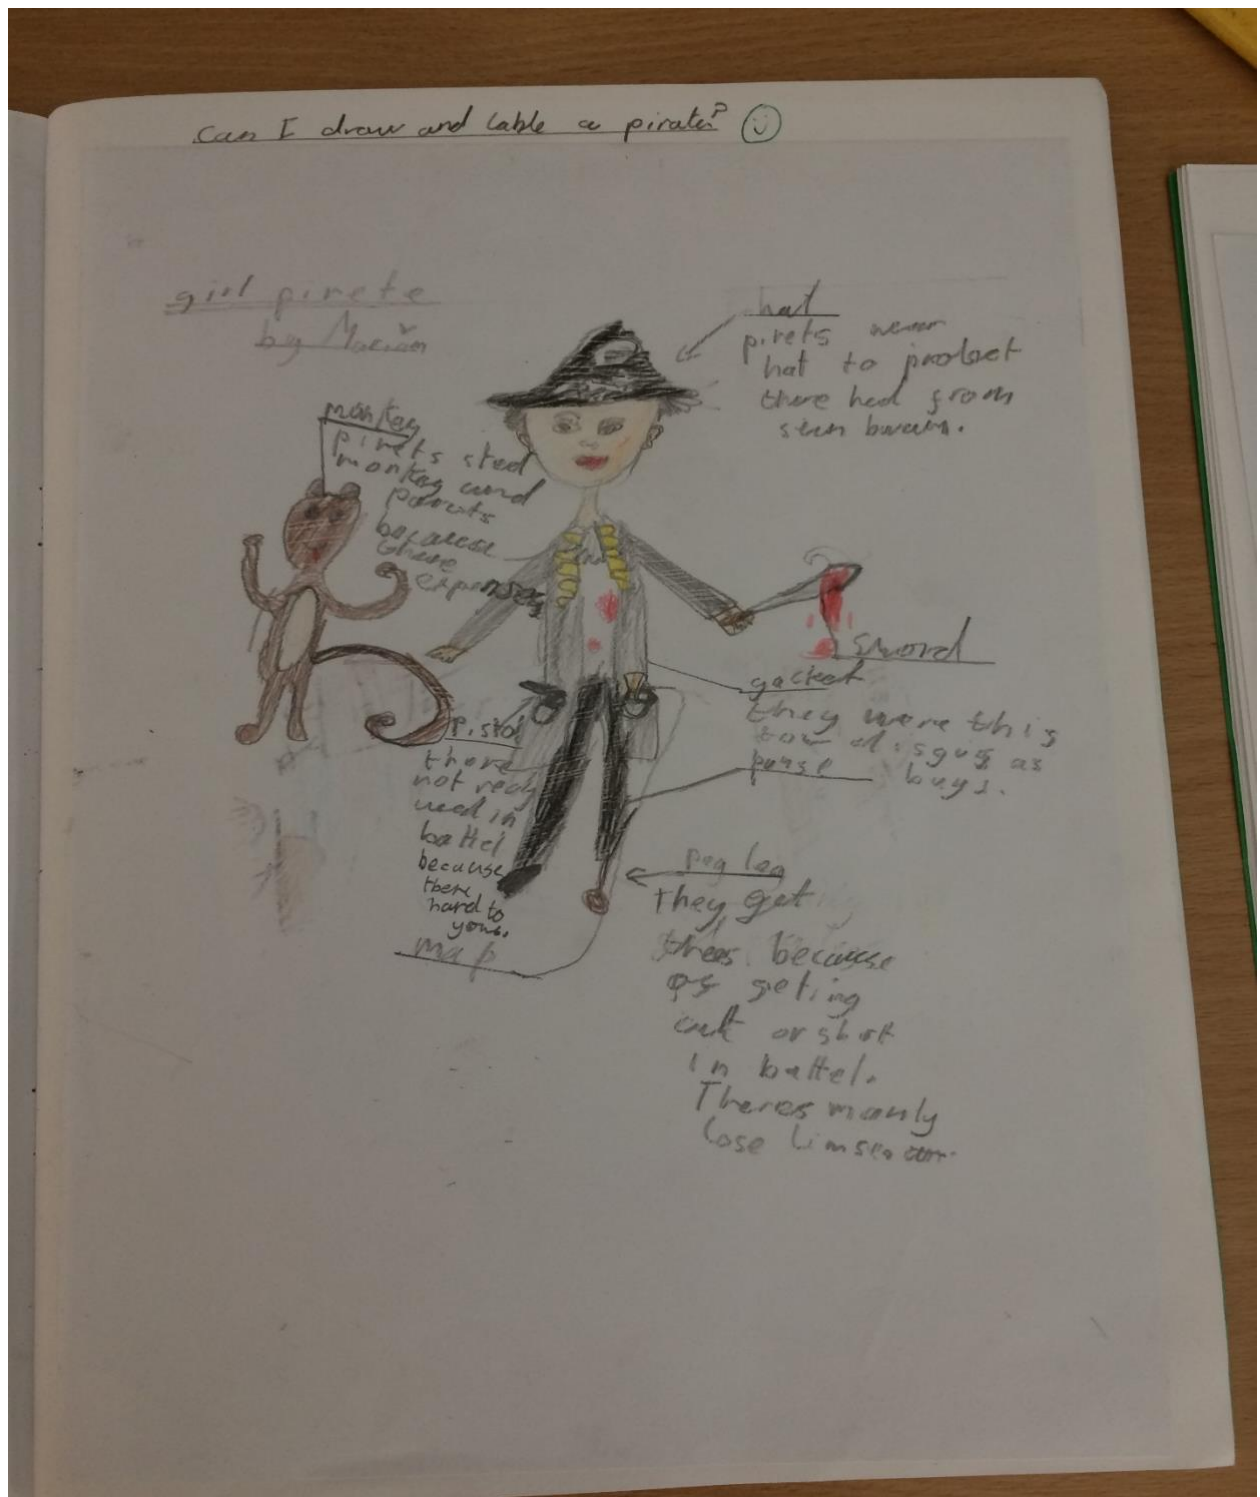 can I draw and lable a pirate?
girl pirete
by
hat
pirets wear
hat to protect
there hed from
sun
monkey
pirets steel
monkey and
parots
because
there
expensev
sword
gacket
they wore this
tow disgus as
boys.
pouse
pistol
there
not realy
used in
battel
because
there
hard to
youse.
map
peg leg
They get
thees because
of geting
cut or shot
in battel.
Theres manly
lose